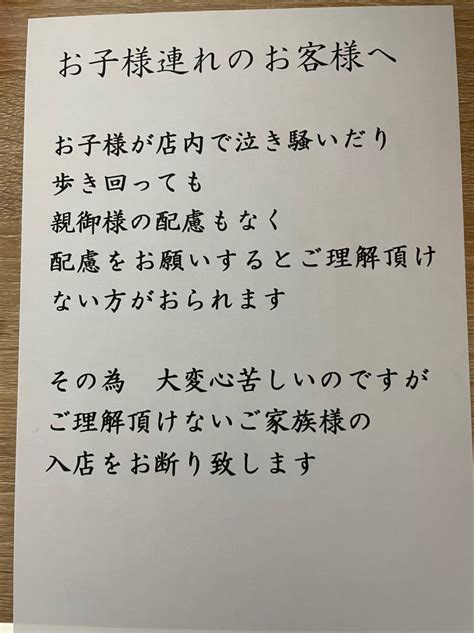 お子様連れのお客様へ
お子様が店内で泣き騒いだり
歩き回っても
親御様の配慮もなく
配慮をお願いするとご理解頂け
ない方がおられます
その為　大変心苦しいのですが
ご理解頂けないご家族様の
入店をお断り致します